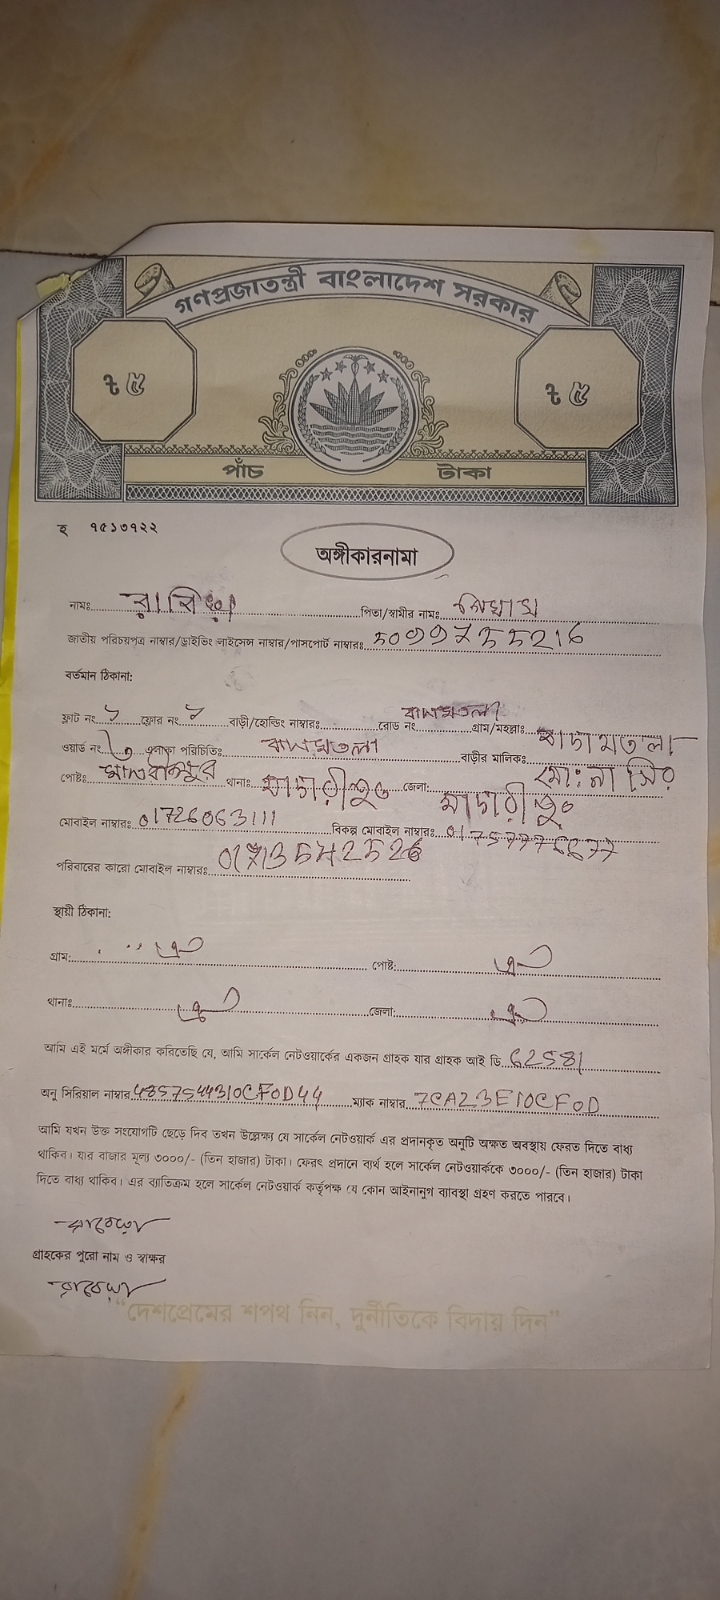 গণপ্রজাতন্ত্রী বাংলাদেশ সরকার
৳ ৫ ৳ ৫
পাঁচ টাকা
হ ৭৫১৩৭২২
অঙ্গীকারনামা
নামঃ পিতা/স্বামীর নামঃ
জাতীয় পরিচয়পত্র নাম্বার/ড্রাইভিং লাইসেন্স নাম্বার/পাসপোর্ট নাম্বারঃ
বর্তমান ঠিকানা:
ফ্লাট নং ফ্লোর নং বাড়ী/হোল্ডিং নাম্বারঃ রোড নং গ্রাম/মহল্লাঃ
ওয়ার্ড নং এলাকা পরিচিতিঃ বাড়ীর মালিকঃ মো: নাসির
পোষ্টঃ থানাঃ মাদারীপুর জেলা: মাদারীপুর
মোবাইল নাম্বারঃ 01726063111 বিকল্প মোবাইল নাম্বারঃ
পরিবারের কারো মোবাইল নাম্বারঃ
স্থায়ী ঠিকানা:
গ্রাম: ঐ পোষ্ট: ঐ
থানাঃ ঐ জেলা: ঐ
আমি এই মর্মে অঙ্গীকার করিতেছি যে, আমি সার্কেল নেটওয়ার্কের একজন গ্রাহক যার গ্রাহক আই ডি 62581
অনু সিরিয়াল নাম্বার 4857544310CF0D44 ম্যাক নাম্বার 7CA23E10CF0D
আমি যখন উক্ত সংযোগটি ছেড়ে দিব তখন উল্লেক্ষ্য যে সার্কেল নেটওয়ার্ক এর প্রদানকৃত অনুটি অক্ষত অবস্থায় ফেরত দিতে বাধ্য
থাকিব। যার বাজার মূল্য ৩০০০/- (তিন হাজার) টাকা। ফেরৎ প্রদানে ব্যর্থ হলে সার্কেল নেটওয়ার্ককে ৩০০০/- (তিন হাজার) টাকা
দিতে বাধ্য থাকিব। এর ব্যতিক্রম হলে সার্কেল নেটওয়ার্ক কর্তৃপক্ষ যে কোন আইনানুগ ব্যাবস্থা গ্রহণ করতে পারবে।
গ্রাহকের পুরো নাম ও স্বাক্ষর
“দেশপ্রেমের শপথ নিন, দুর্নীতিকে বিদায় দিন”